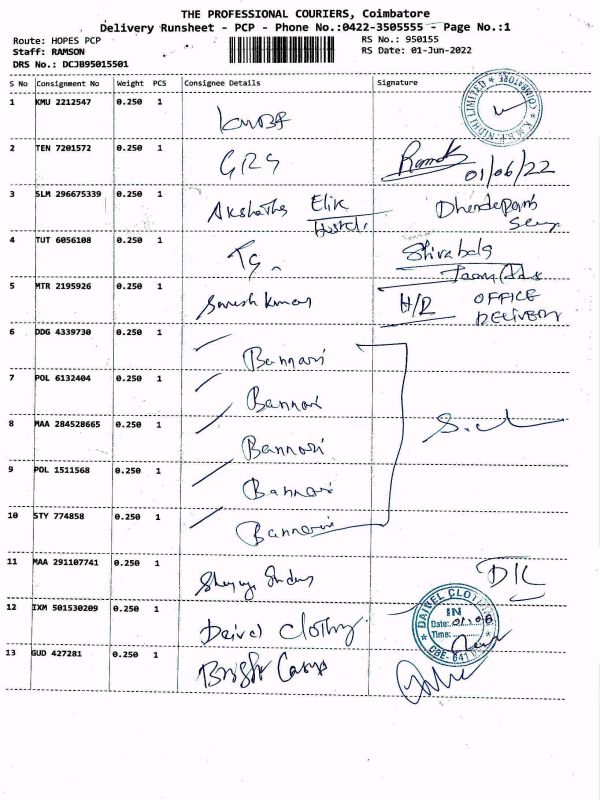 THE PROFESSIONAL COURIERS, Coimbatore
Delivery Runsheet - PCP - Phone No.:0422-3505555 - Page No.:1
Route: HOPES PCP
RS No.: 950155
Staff: RAMSON
RS Date: 01-Jun-2022
DRS No.: DCJB95015501
S No Consignment No Weight PCS Consignee Details Signature
1 KMU 2212547 0.250 1 KMBF
2 TEN 7201572 0.250 1 GRG 01/06/22
3 SLM 296675339 0.250 1 Akshatha Elik
4 TUT 6056108 0.250 1
5 MTR 2195926 0.250 1 Suresh Kumar H/R OFFICE
DELIVERY
6 DDG 4339730 0.250 1 Bannari
7 POL 6132404 0.250 1 Bannari
8 MAA 284528665 0.250 1 Bannari
9 POL 1511568 0.250 1 Bannari
10 STY 774858 0.250 1 Bannari
11 MAA 291107741 0.250 1
12 IXM 501530209 0.250 1 Daivel Clothing
DAIVEL CLOTHING
IN
Date: 01/06
Time:
13 GUD 427281 0.250 1 Bright Camps